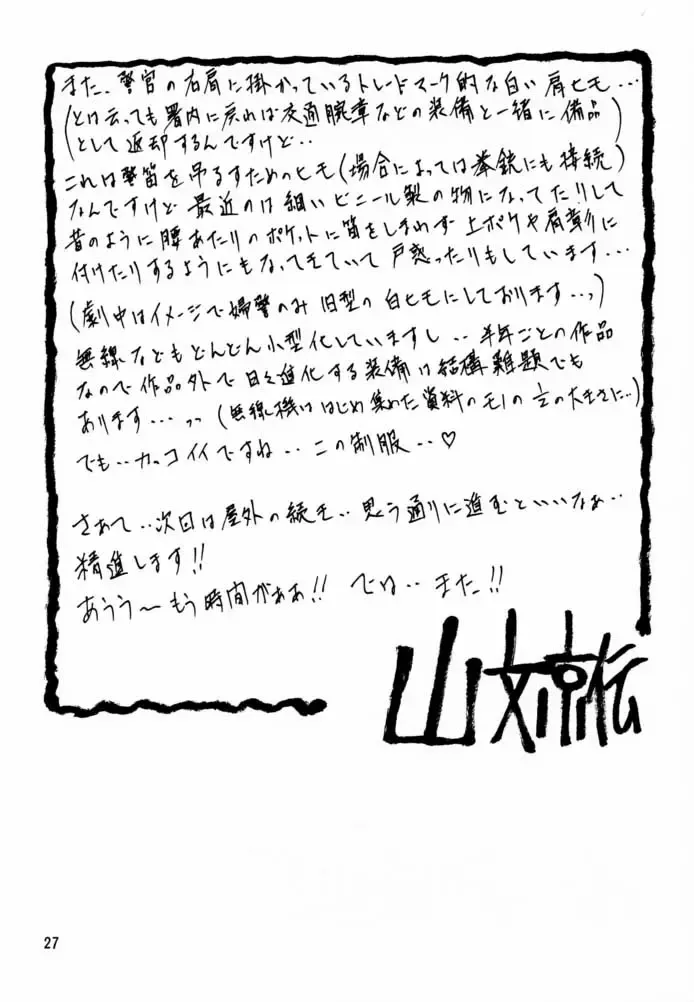 また、警官の右肩に掛かっているトレードマーク的な白い肩ヒモ…
(とは云っても署内に戻れば交通腕章などの装備と一緒に備品
として返却するんですけど‥)
これは警笛を吊るすためのヒモ(場合によっては拳銃にも接続)
なんですけど最近のは細いビニール製の物になってたりして
昔のように腰あたりのポケットに笛をしまわず上ポケや肩章に
付けたりするようにもなってきていて戸惑ったりもしています…
(劇中はイメージで婦警のみ旧型の白ヒモにしております…っ)
無線などもどんどん小型化していますし‥半年ごとの作品
なので作品外で日々進化する装備は結構難題でも
あります…っっ(無線機ははじめ集めた資料のモノの½の大きさに‥)
でも‥カッコイイですね‥この制服‥♡
さあて‥次回は屋外の続き‥思う通りに進むといいなぁ‥
精進します!!
あうう〜もう時間がああ!! では‥また!!
山文京伝
27